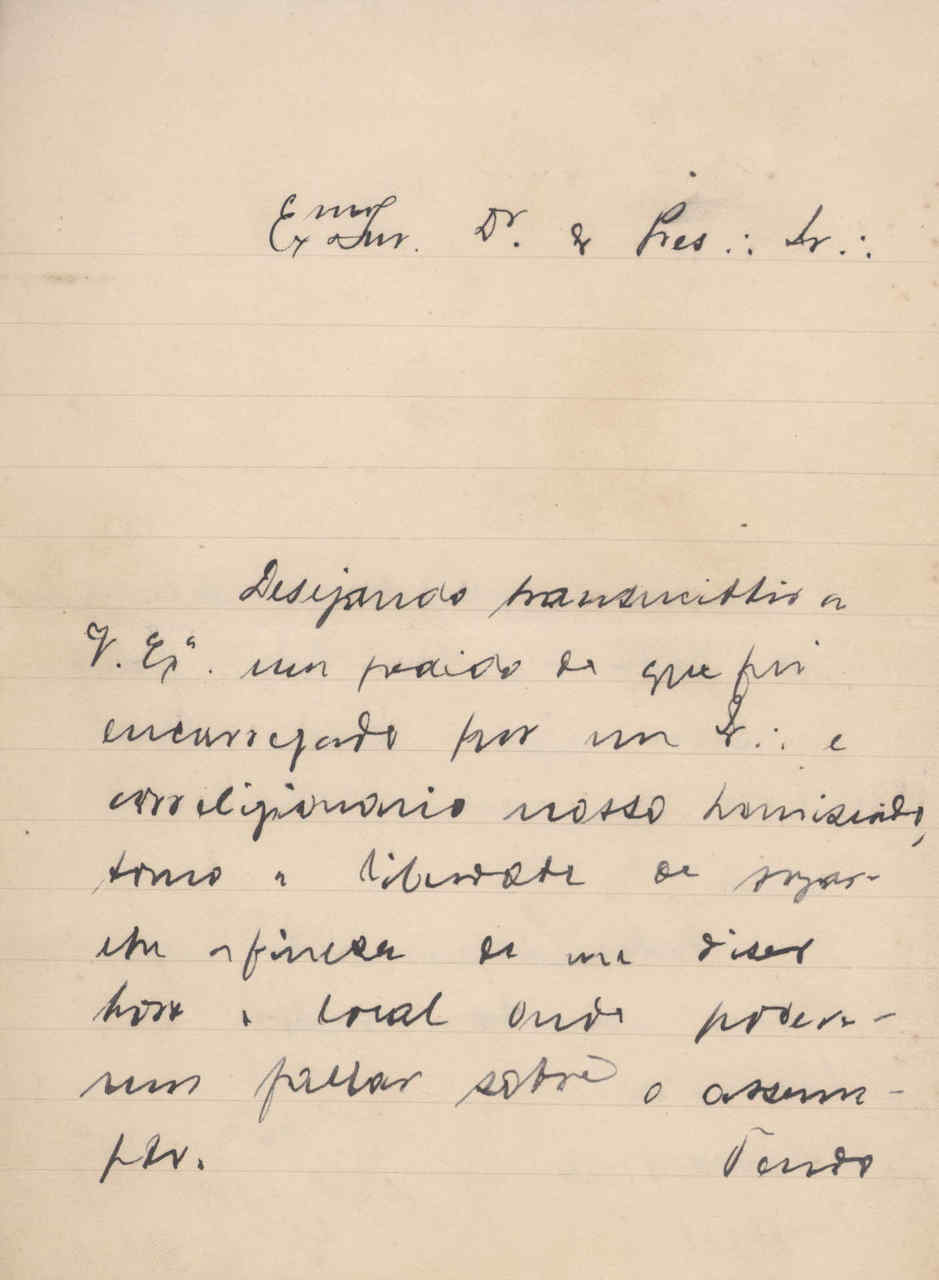 Exmo Snr. Dr. & Pres.∴ Ir.∴
Desejando transmittir a
V. Exª. um pedido de que fui
encarregado por um Ir.∴ e
correligionario nosso homisiado,
tomo a liberdade de rogar-
lhe a fineza de me dizer
hora e local onde podere-
mos fallar sobre o assum-
pto. Tendo